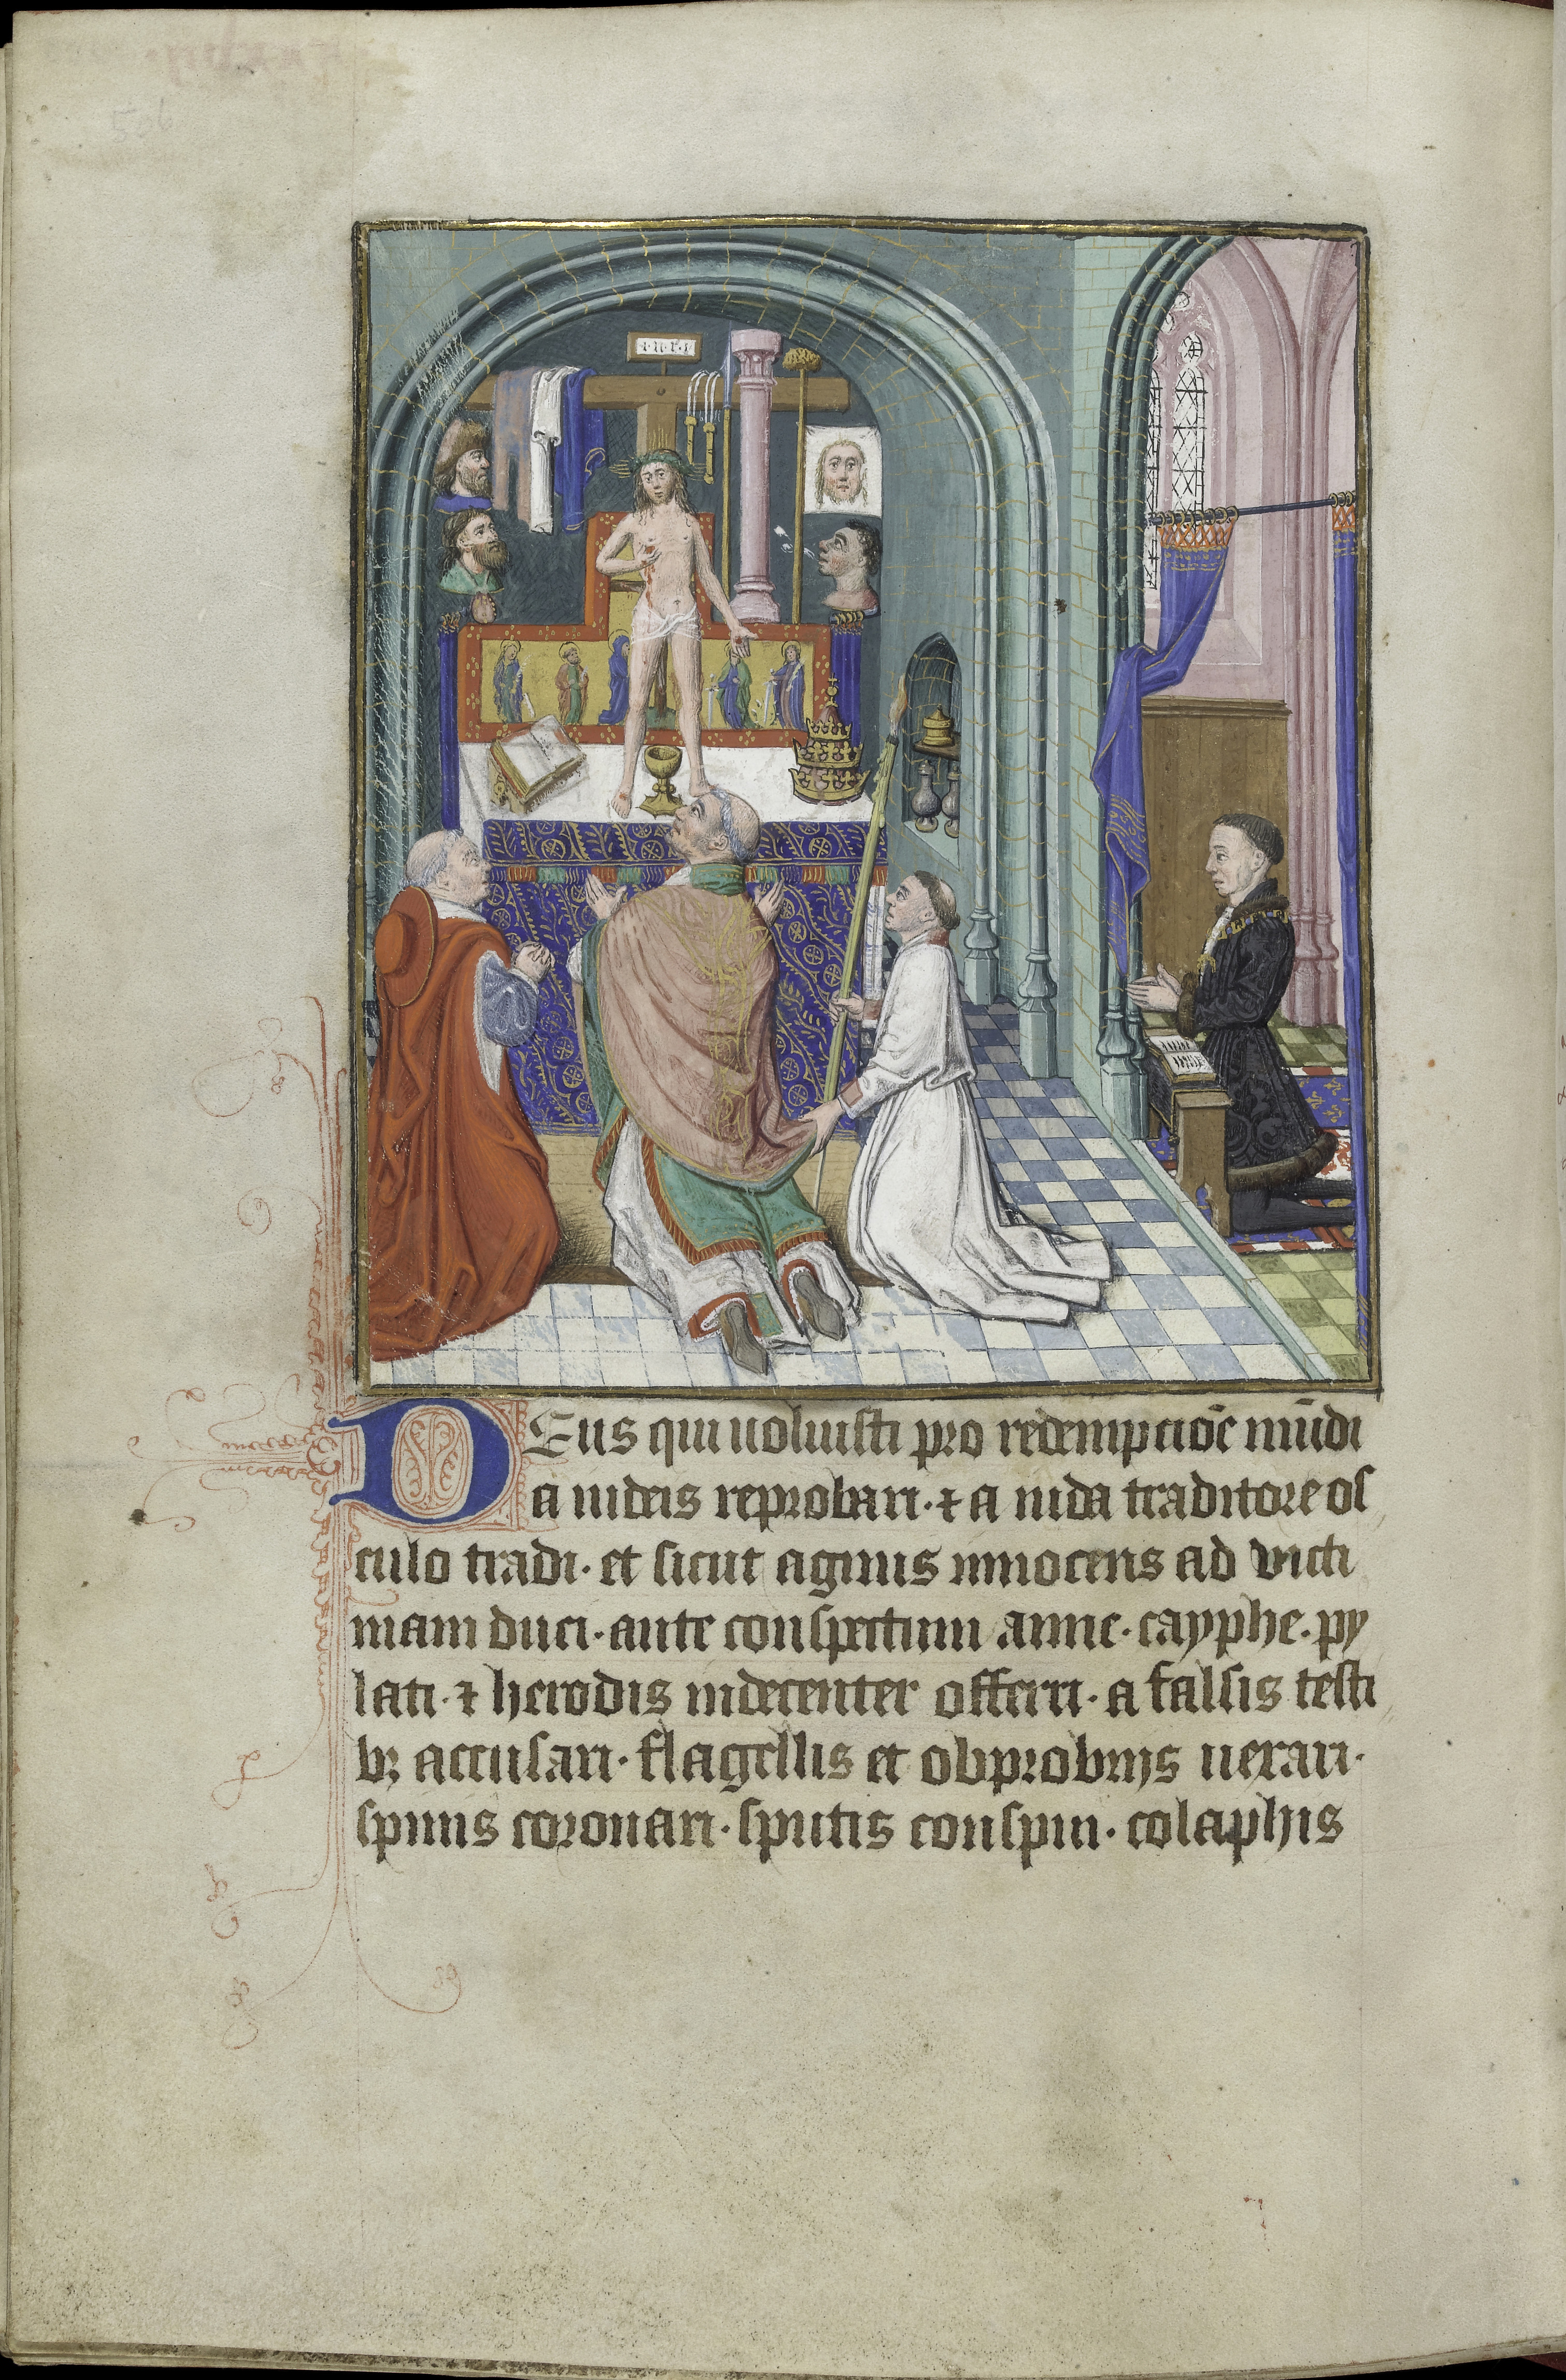 506
i·n·r·i
DEus qui uoluisti pro redempcio͞e mu͞di
a iudeis reprobari· ⁊ a iuda traditore os
culo tradi· et sicut agnus innocens ad victi
mam duci· ante conspectum anne· cayphe· py
lati· ⁊ herodis indecenter offerri· a falsis testi
bꝫ accusari· flagellis et obprobrijs uexari·
spinis coronari· sputis conspui· colaphis